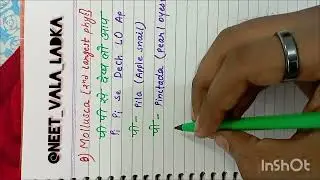 @NEET_VALA_LADKA
8) Mollusca [2nd largest phyl]
पी पी से देख लो आप
Pi Pi Se Dech LO Ap
पी - Pila (Apple snail)
पी - Pinctada (Pearl oyes
InShOt